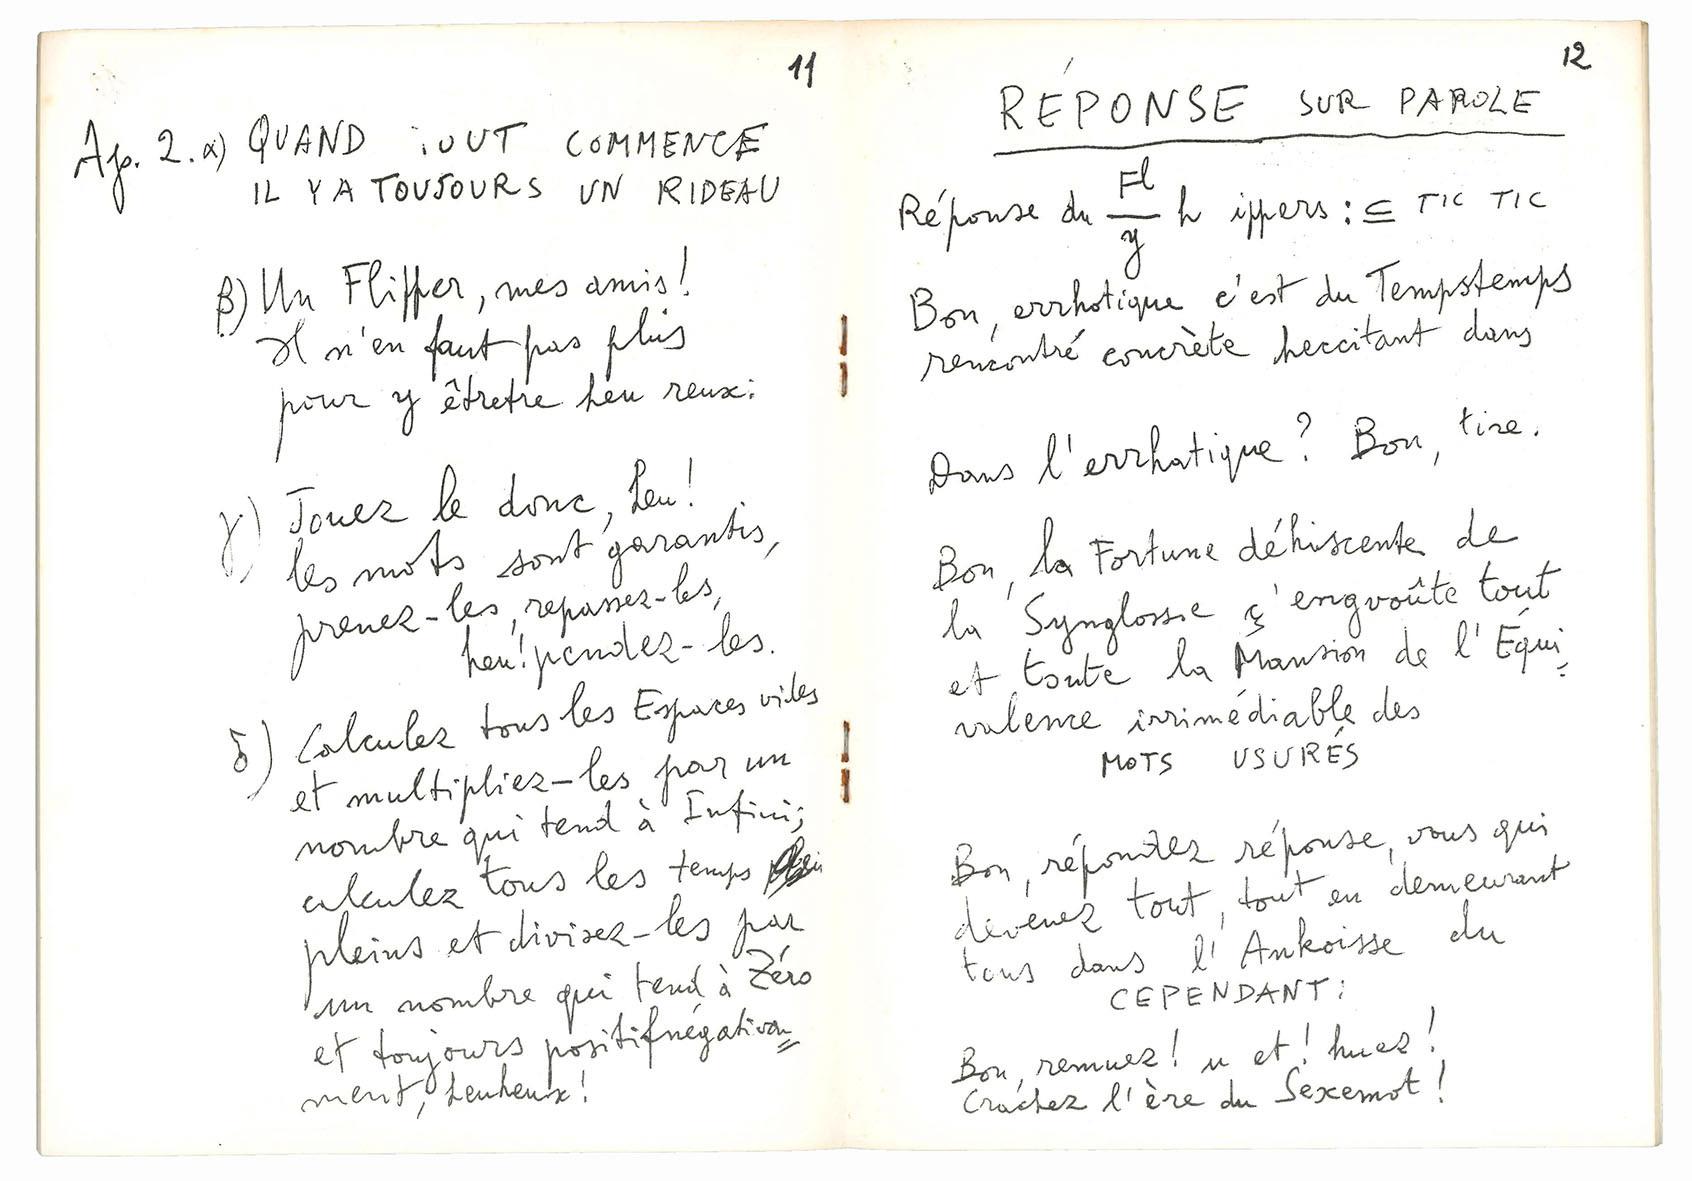 11
Ap. 2. α) QUAND TOUT COMMENCE
IL Y A TOUJOURS UN RIDEAU
β) Un Flipper, mes amis!
Il n'en faut pas plus
pour y êtretre heu reux:
γ) Jouez le donc, heu!
les mots sont garantis,
prenez-les, repassez-les,
heu! pendez-les.
δ) Calculez tous les Espaces vides
et multipliez-les par un
nombre qui tend à Infini;
calculez tous les temps
pleins et divisez-les par
un nombre qui tend à Zéro
et toujours positifnégativon=
ment, heuheux!
12
RÉPONSE SUR PAROLE
Réponse du Fl/y h ippers : ⊆ TIC TIC
Bon, errhotique c'est du Tempstemps
rencontré concrète heccitant dans
Dans l'errhatique? Bon, tire.
Bon, la Fortune déhiscente de
la Synglosse ç'engvoûte tout
et toute la Mansion de l'Équi=
valence irrimédiable des
MOTS USURÉS
Bon, répondez réponse, vous qui
devenez tout, tout en demeurant
tous dans l'Ankoisse du
CEPENDANT:
Bon, remuez! u et! huez!
Crachez l'ère du Sexemot!